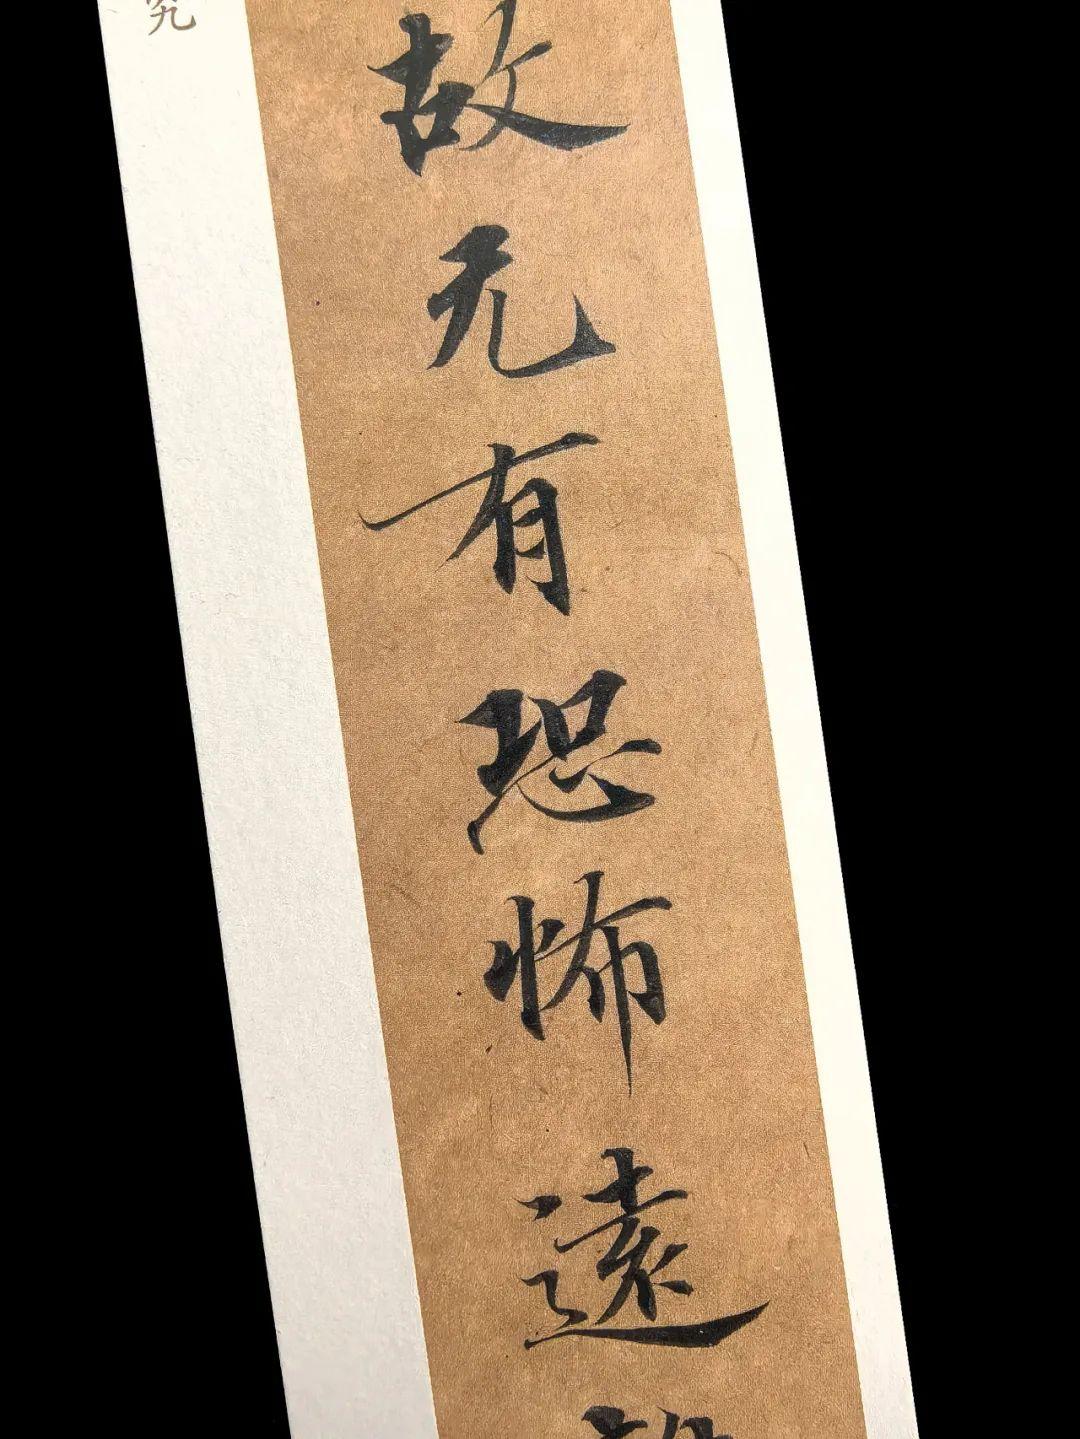 故无有恐怖遠
究